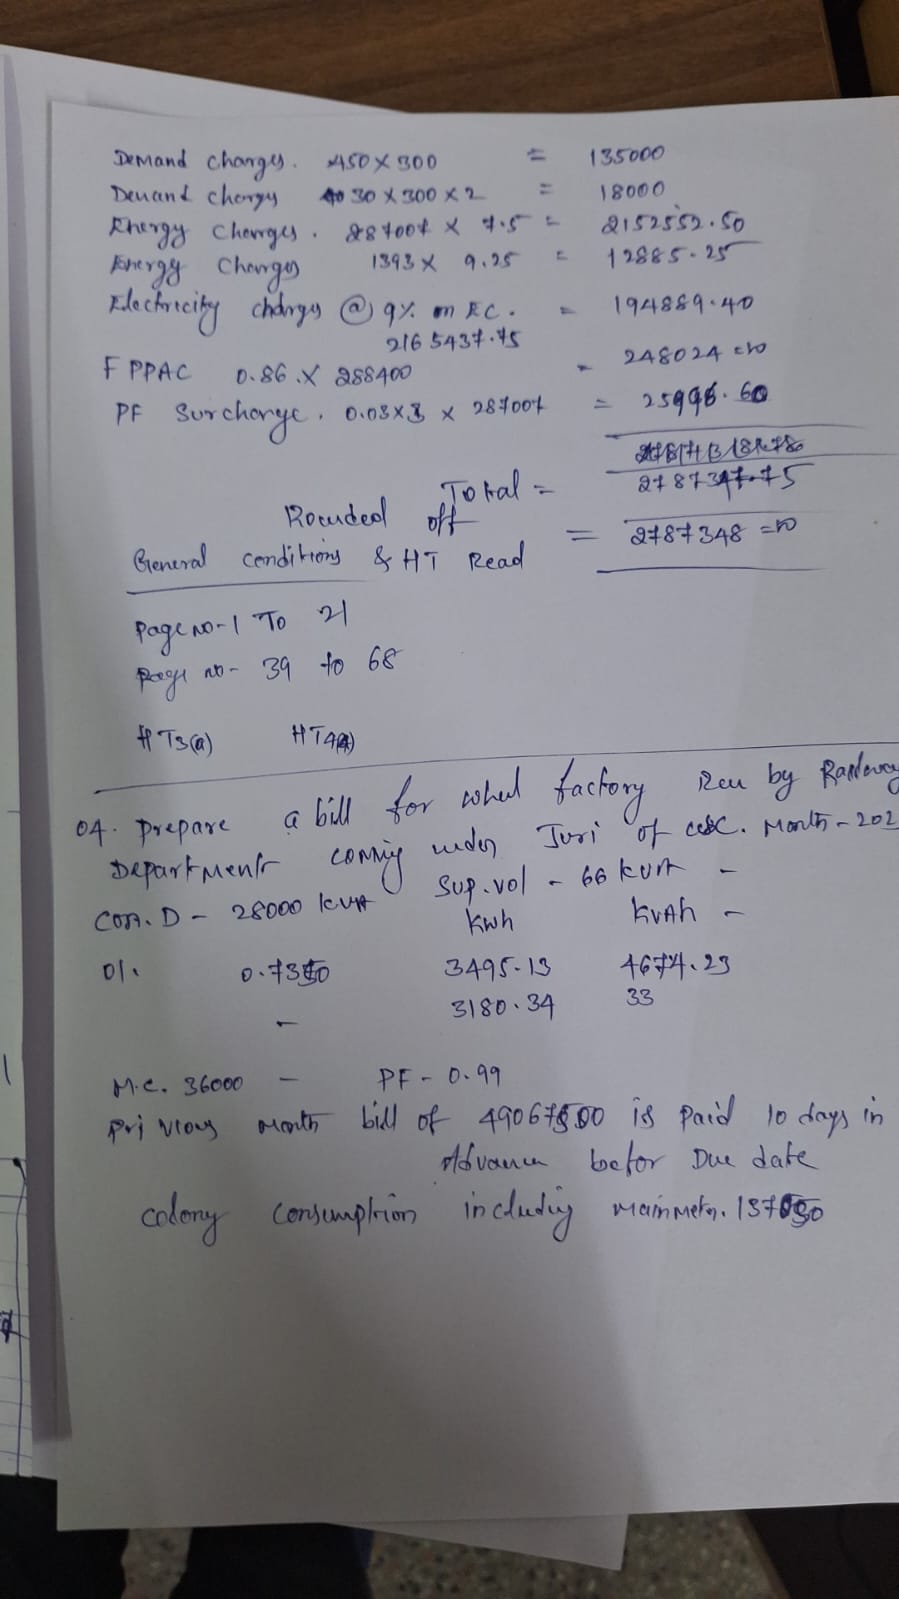 Demand charges. 450 X 300 = 135000
Demand charges 30 X 300 X 2 = 18000
Energy Charges. 287007 X 7.5 = 2152552.50
Energy Charges 1393 X 9.25 = 12885.25
Electricity charges @ 9% on EC. = 194889.40
2165437.75
FPPAC 0.86 X 288400 = 248024 =00
PF Surcharge. 0.03 X 3 X 287007 = 25996.60
Total = 2787347.75
Rounded off = 2787348 =00
General conditions & HT Read
Page no-1 To 21
Page no- 39 to 68
HT3(a) HT4(a)
04. Prepare a bill for wheel factory Run by Railway
Department coming under Juri of cesc. Month - 202
Con. D - 28000 kVA Sup. vol - 66 kVA -
Kwh KVAh -
01. 3495.13 4674.23
- 3180.34 33
M.C. 36000 - PF - 0.99
Privious month bill of is paid 10 days in
Advance befor Due date
colony consumption including mainmeter.